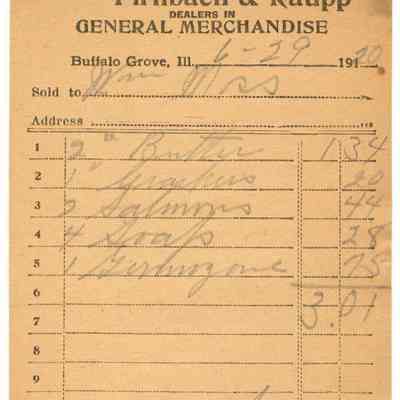 Firnbach & Raupp
DEALERS IN
GENERAL MERCHANDISE
Buffalo Grove, Ill. 6-29 1920
Sold to Wm Woss
Address
1 2 " Butter 1 34
2 1 Grackers 20
3 2 Salmons 44
4 4 Soaps 28
5 1 Germozone 75
6 3.01
7
8
9